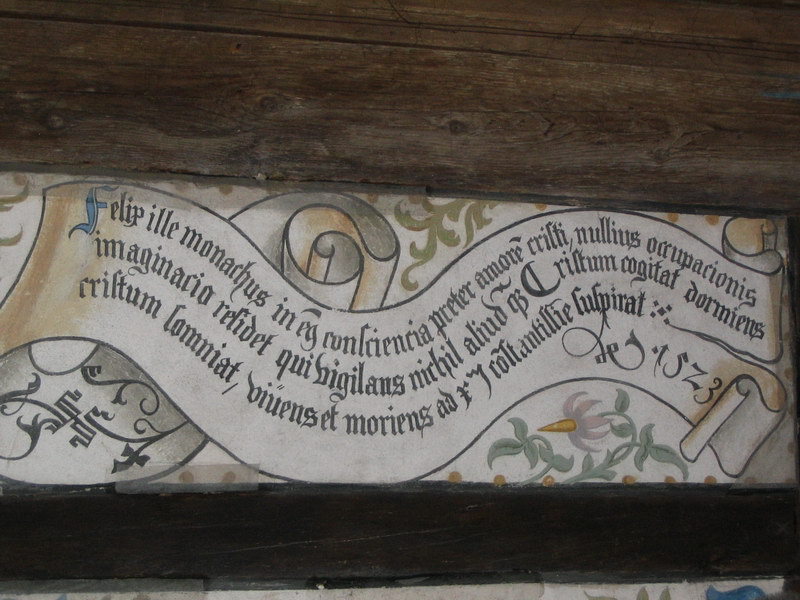 Felix ille monachus in eꝰ consciencia preter amorē cristi, nullius occupacionis
imaginacio residet qui vigilans nichil aliud qȝ Cristum cogitat dormiens
cristum somniat, viuens et moriens ad xm cōstantissīe suspirat
1523